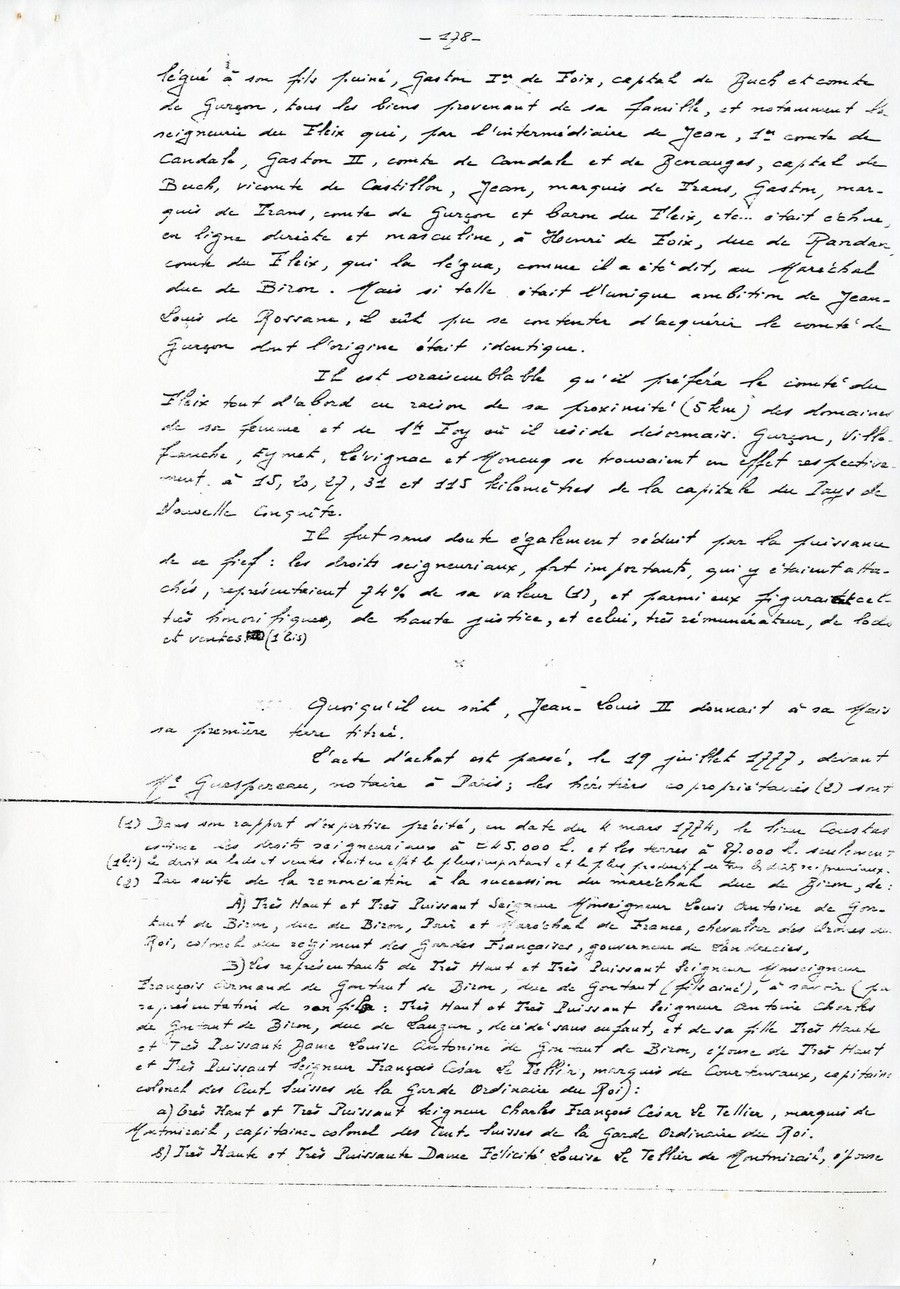 - 178 -
légué à son fils puiné, Gaston Ier de Foix, captal de Buch et comte
de Gurçon, tous les biens provenant de sa famille, et notamment la
seigneurie du Fleix qui, par l'intermédiaire de Jean, 1er comte de
Candale, Gaston II, comte de Candale et de Benauges, captal de
Buch, vicomte de Castillon, Jean, marquis de Trans, Gaston, mar-
quis de Trans, comte de Gurçon et baron du Fleix, etc... était échue,
en ligne directe et masculine, à Henri de Foix, duc de Randan,
comte du Fleix, qui la légua, comme il a été dit, au Maréchal
duc de Biron. Mais si telle était l'unique ambition de Jean-
Louis de Rossane, il eût pu se contenter d'acquérir le comté de
Gurçon dont l'origine était identique.
Il est vraisemblable qu'il préféra le comté du
Fleix tout d'abord en raison de sa proximité (5 km) des domaines
de sa femme et de Ste Foy où il réside désormais: Gurçon, Ville-
franche, Eymet, Lévignac et Moncuq se trouvaient en effet respective-
ment à 15, 20, 27, 31 et 115 kilomètres de la capitale du Pays de
Nouvelle Conquête.
Il fut sans doute également séduit par la puissance
de ce fief: les droits seigneuriaux, fort importants, qui y étaient atta-
chés, représentaient 74% de sa valeur (1), et parmi eux figurait cel-
très honorifique, de haute justice, et celui, très rémunérateur, de lods
et ventes (1 bis)
Quoiqu'il en soit, Jean-Louis II donnait à sa Mais
sa première terre titrée.
L'acte d'achat est passé, le 19 juillet 1777, devant
Me Guespereau, notaire à Paris; les héritiers copropriétaires (2) sont
(1) Dans son rapport d'expertise précité, en date du 4 mars 1774, le sieur Coustas
estime les droits seigneuriaux à 245.000 L. et les terres à 87.000 L. seulement
(1 bis) le droit de lods et ventes était en effet le plus important et le plus productif de tous les droits seigneuriaux.
(2) Par suite de la renonciation à la succession du maréchal duc de Biron, de:
A) Très Haut et Très Puissant Seigneur Monseigneur Louis Antoine de Gon-
taut de Biron, duc de Biron, Pair et Maréchal de France, chevalier des Ordres du
Roi, colonel du régiment des Gardes Françaises, gouverneur de Landrecies,
B) Les représentants de Très Haut et Très Puissant Seigneur Monseigneur
François Armand de Gontaut de Biron, duc de Gontaut (fils ainé), à savoir (pa
représentation de son fils: Très Haut et Très Puissant Seigneur Antoine Charles
de Gontaut de Biron, duc de Lauzun, décédé sans enfant, et de sa fille Très Haute
et Très Puissante Dame Louise Antonine de Gontaut de Biron, épouse de Très Haut
et Très Puissant Seigneur François César Le Tellier, marquis de Courtenvaux, capitaine
colonel des Cent-Suisses de la Garde Ordinaire du Roi):
a) Très Haut et Très Puissant Seigneur Charles François César Le Tellier, marquis de
Montmirail, capitaine-colonel des Cent-Suisses de la Garde Ordinaire du Roi.
b) Très Haute et Très Puissante Dame Félicité Louise Le Tellier de Montmirail, épouse